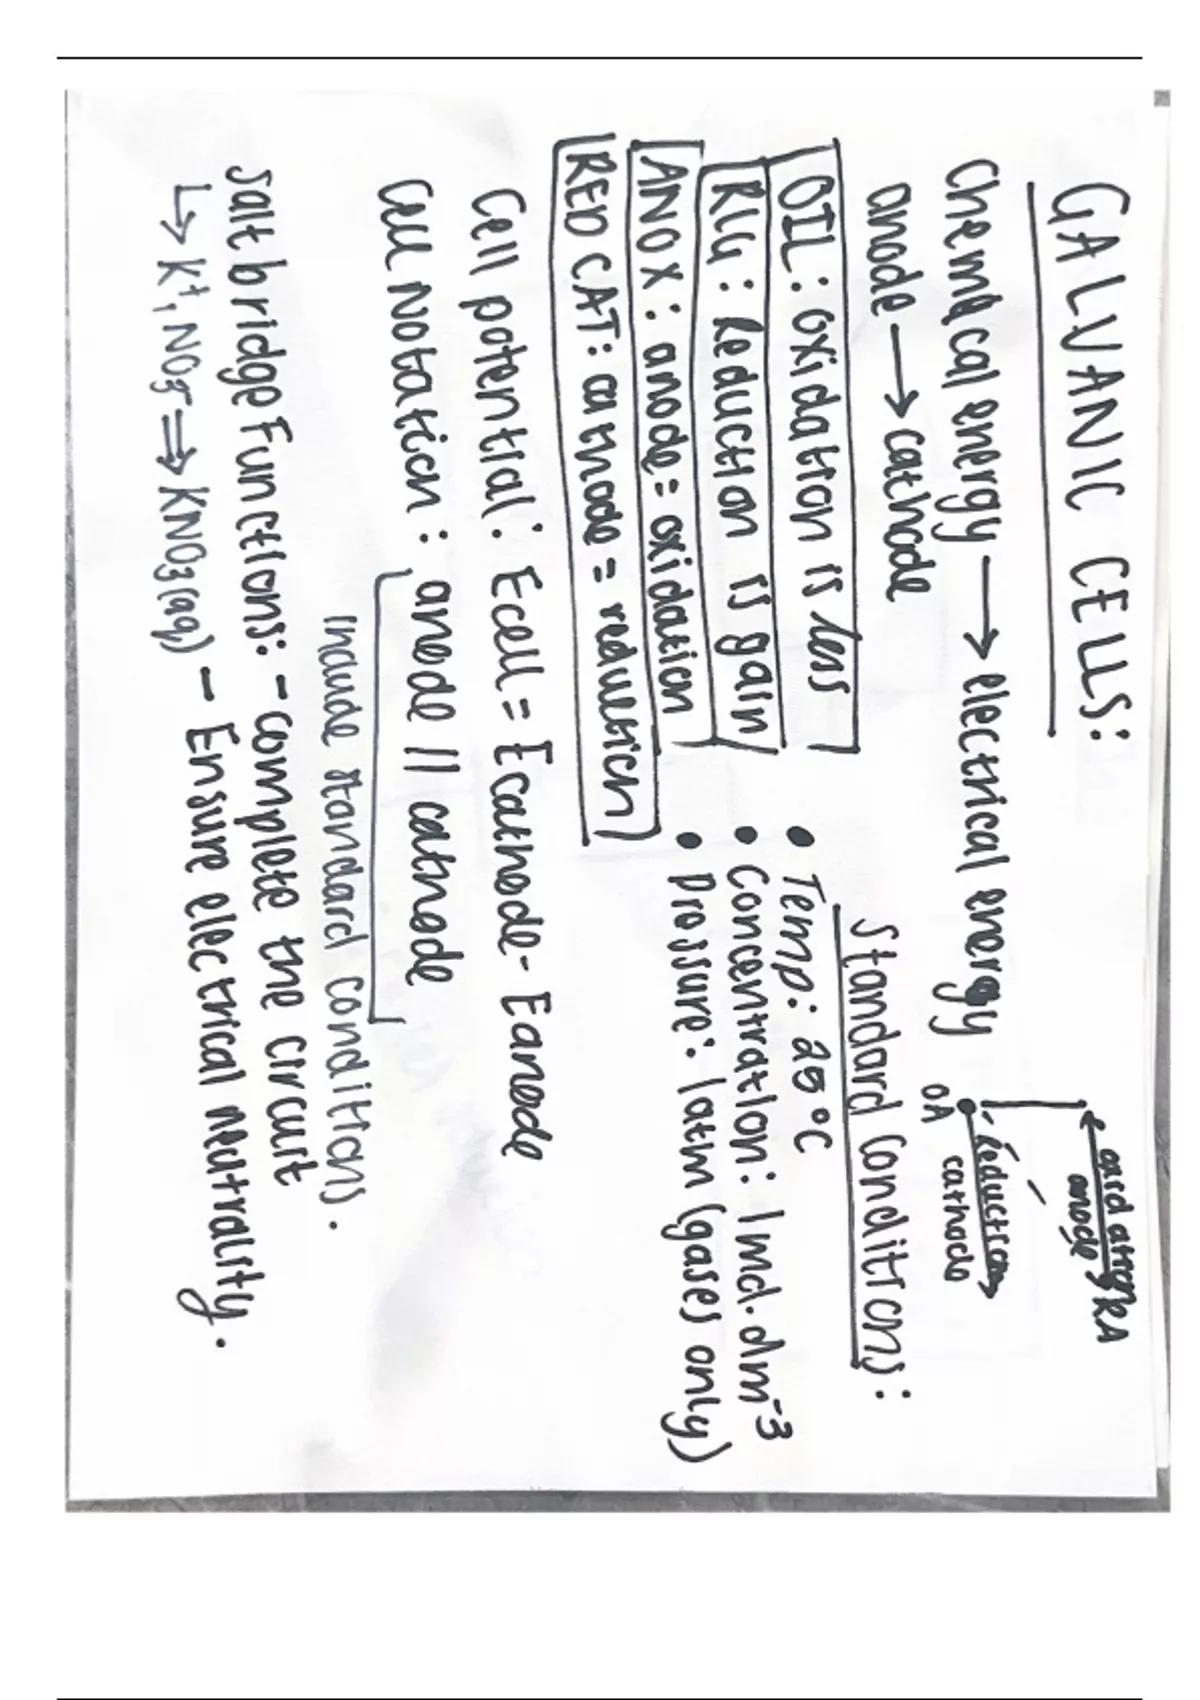 GALVANIC CELLS:
Chemical energy → electrical energy
anode → cathode
← oxidation RA
anode
OA reduction →
cathode
OIL: oxidation is loss
RIG: Reduction is gain
ANOX: anode = oxidation
RED CAT: cathode = reduction
Standard Conditions:
• Temp: 25°C
• Concentration: 1mol.dm⁻³
• Pressure: 1atm (gases only)
Cell potential: Ecell = Ecathode - Eanode
Cell Notation: anode // cathode
include standard conditions.
Salt bridge Functions: - complete the circuit
↳ K⁺, NO₃⁻ ⇒ KNO₃(aq) - Ensure electrical neutrality.